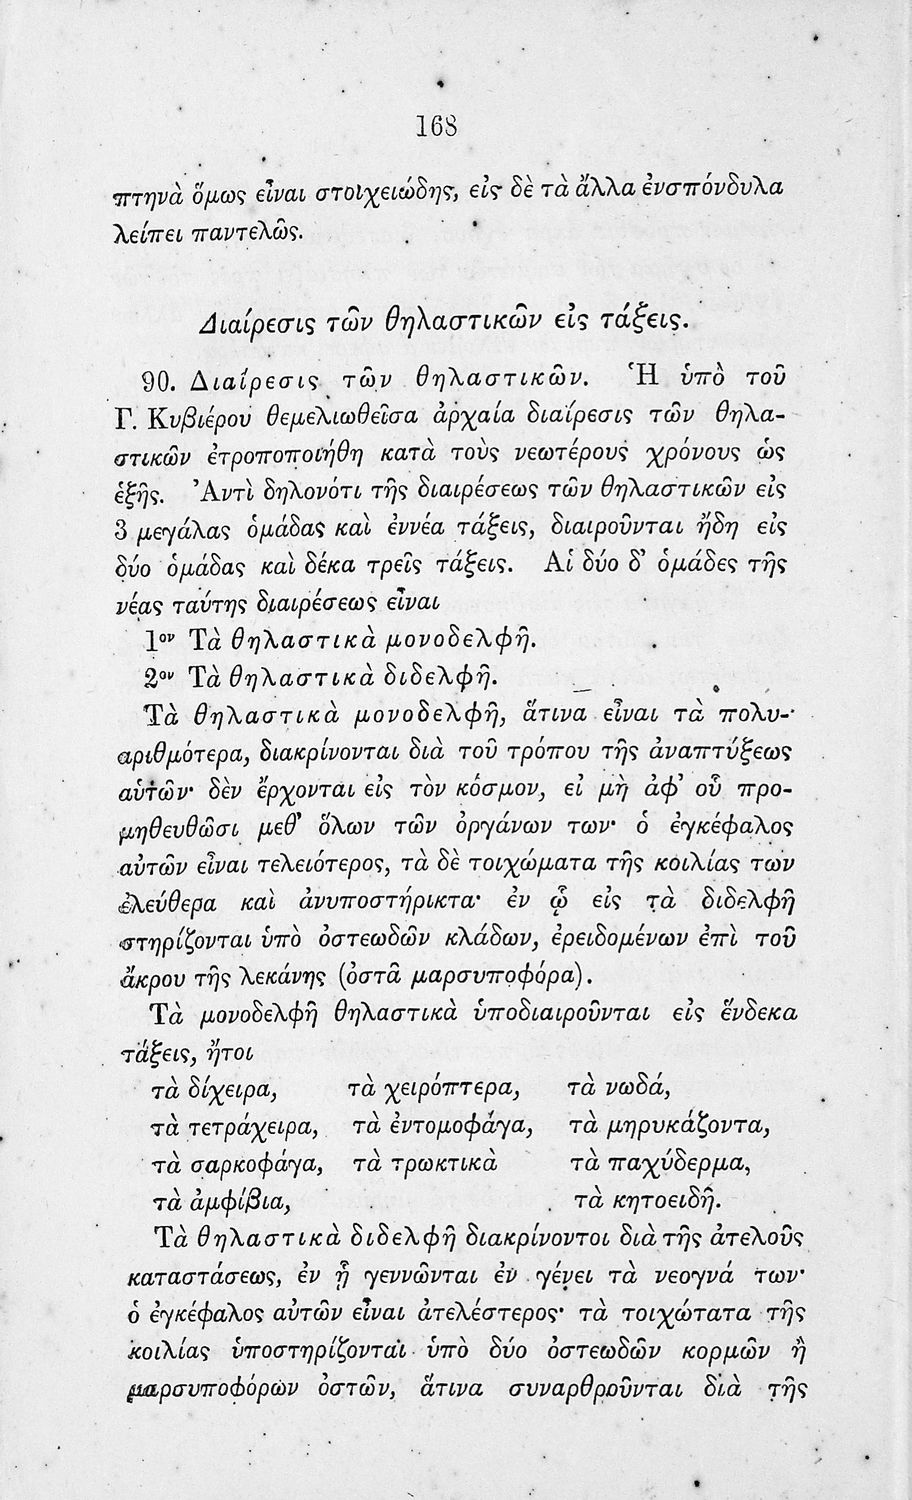 168
πτηνὰ ὅμως εἶναι στοιχειώδης, εἰς δὲ τὰ ἄλλα ἐνσπόνδυλα
λείπει παντελῶς.
Διαίρεσις τῶν θηλαστικῶν εἰς τάξεις.
90. Διαίρεσις τῶν θηλαστικῶν. Ἡ ὑπὸ τοῦ
Γ. Κυβιέρου θεμελιωθεῖσα ἀρχαία διαίρεσις τῶν θηλα-
στικῶν ἐτροποποιήθη κατὰ τοὺς νεωτέρους χρόνους ὡς
ἑξῆς. Ἀντὶ δηλονότι τῆς διαιρέσεως τῶν θηλαστικῶν εἰς
3 μεγάλας ὁμάδας καὶ ἐννέα τάξεις, διαιροῦνται ἤδη εἰς
δύο ὁμάδας καὶ δέκα τρεῖς τάξεις. Αἱ δύο δ' ὁμάδες τῆς
νέας ταύτης διαιρέσεως εἶναι
1ον Τὰ θηλαστικὰ μονοδελφῆ.
2ον Τὰ θηλαστικὰ διδελφῆ.
Τὰ θηλαστικὰ μονοδελφῆ, ἅτινα εἶναι τὰ πολυ-
αριθμότερα, διακρίνονται διὰ τοῦ τρόπου τῆς ἀναπτύξεως
αὑτῶν· δὲν ἔρχονται εἰς τὸν κόσμον, εἰ μὴ ἀφ' οὗ προ-
μηθευθῶσι μεθ' ὅλων τῶν ὀργάνων των· ὁ ἐγκέφαλος
αὐτῶν εἶναι τελειότερος, τὰ δὲ τοιχώματα τῆς κοιλίας των
ἐλεύθερα καὶ ἀνυποστήρικτα· ἐν ᾧ εἰς τὰ διδελφῆ
στηρίζονται ὑπὸ ὀστεωδῶν κλάδων, ἐρειδομένων ἐπὶ τοῦ
ἄκρου τῆς λεκάνης (ὀστᾶ μαρσυποφόρα).
Τὰ μονοδελφῆ θηλαστικὰ ὑποδιαιροῦνται εἰς ἕνδεκα
τάξεις, ἤτοι
τὰ δίχειρα, τὰ χειρόπτερα, τὰ νωδά,
τὰ τετράχειρα, τὰ ἐντομοφάγα, τὰ μηρυκάζοντα,
τὰ σαρκοφάγα, τὰ τρωκτικὰ τὰ παχύδερμα,
τὰ ἀμφίβια, τὰ κητοειδῆ.
Τὰ θηλαστικὰ διδελφῆ διακρίνοντοι διὰ τῆς ἀτελοῦς
καταστάσεως, ἐν ᾗ γεννῶνται ἐν γένει τὰ νεογνά των·
ὁ ἐγκέφαλος αὐτῶν εἶναι ἀτελέστερος· τὰ τοιχώτατα τῆς
κοιλίας ὑποστηρίζονται ὑπὸ δύο ὀστεωδῶν κορμῶν ἢ
μαρσυποφόρων ὀστῶν, ἅτινα συναρθροῦνται διὰ τῆς